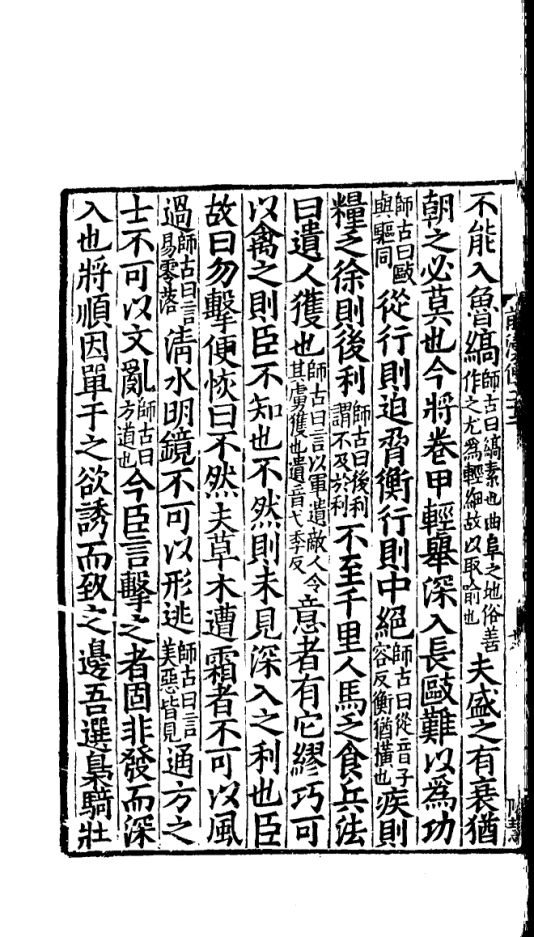 不能入魯縞師古曰縞素也曲阜之地俗善作之尤爲輕細故以取喻也夫盛之有衰猶
朝之必莫也今將卷甲輕舉深入長敺難以爲功
師古曰敺與驅同從行則迫脅衡行則中絕師古曰從音子容反衡猶橫也疾則
糧乏徐則後利師古曰後利謂不及於利不至千里人馬乏食兵法
曰遺人獲也師古曰言以軍遺敵人令其虜獲也遺音弋季反意者有它繆巧可
以禽之則臣不知也不然則未見深入之利也臣
故曰勿擊便恢曰不然夫草木遭霜者不可以風
過師古曰言易零落清水明鏡不可以形逃師古曰言美惡皆見通方之
士不可以文亂師古曰方道也今臣言擊之者固非發而深
入也將順因單于之欲誘而致之邊吾選梟騎壯